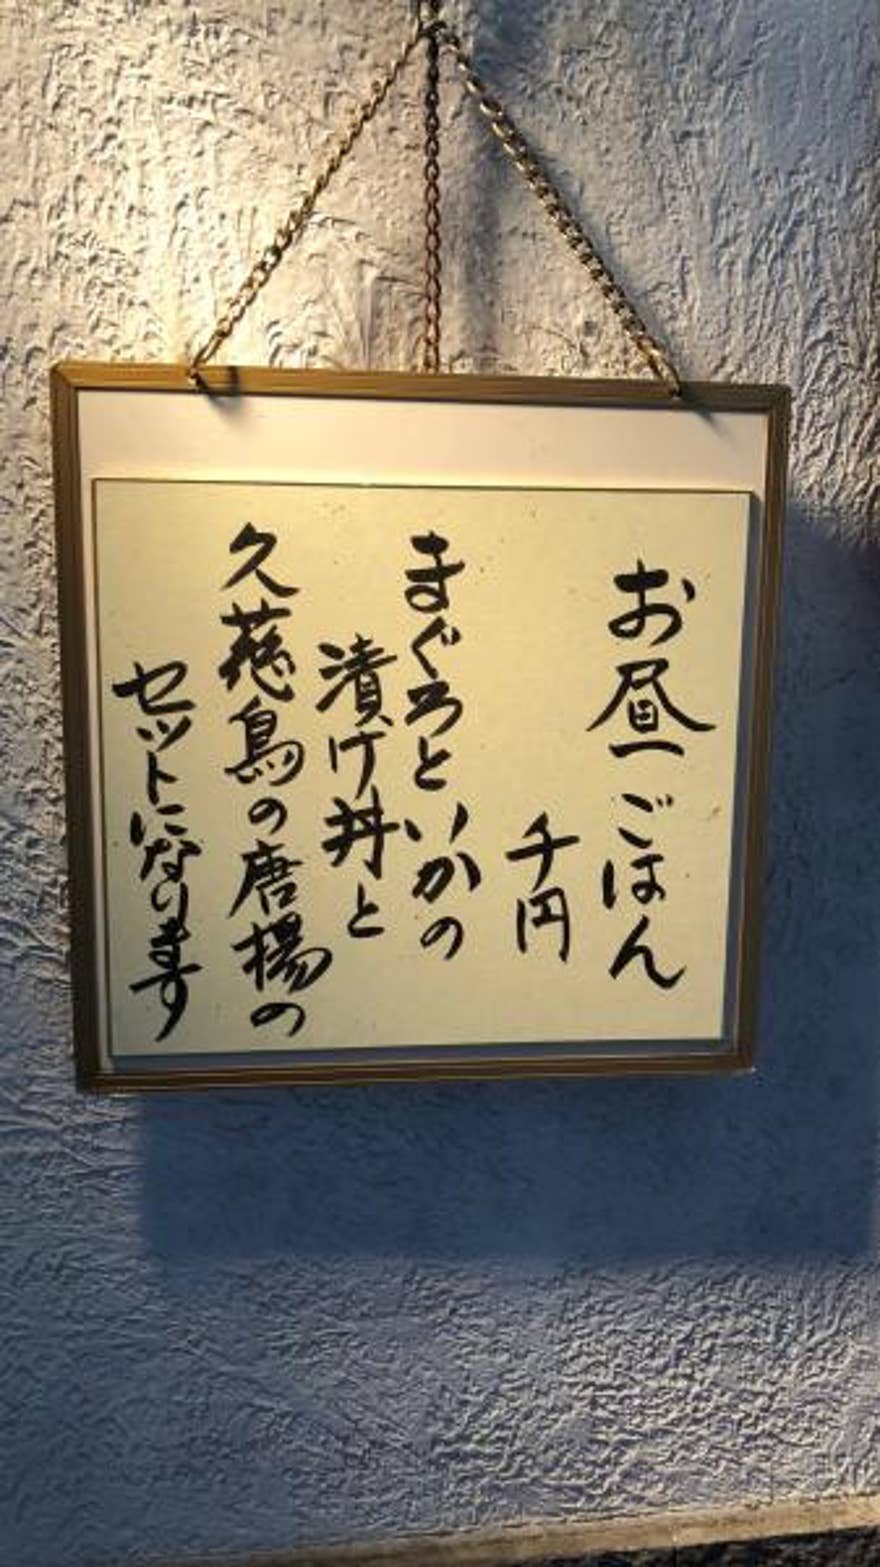 お昼ごはん
千円
まぐろといかの
漬け丼と
久慈鳥の唐揚の
セットになります